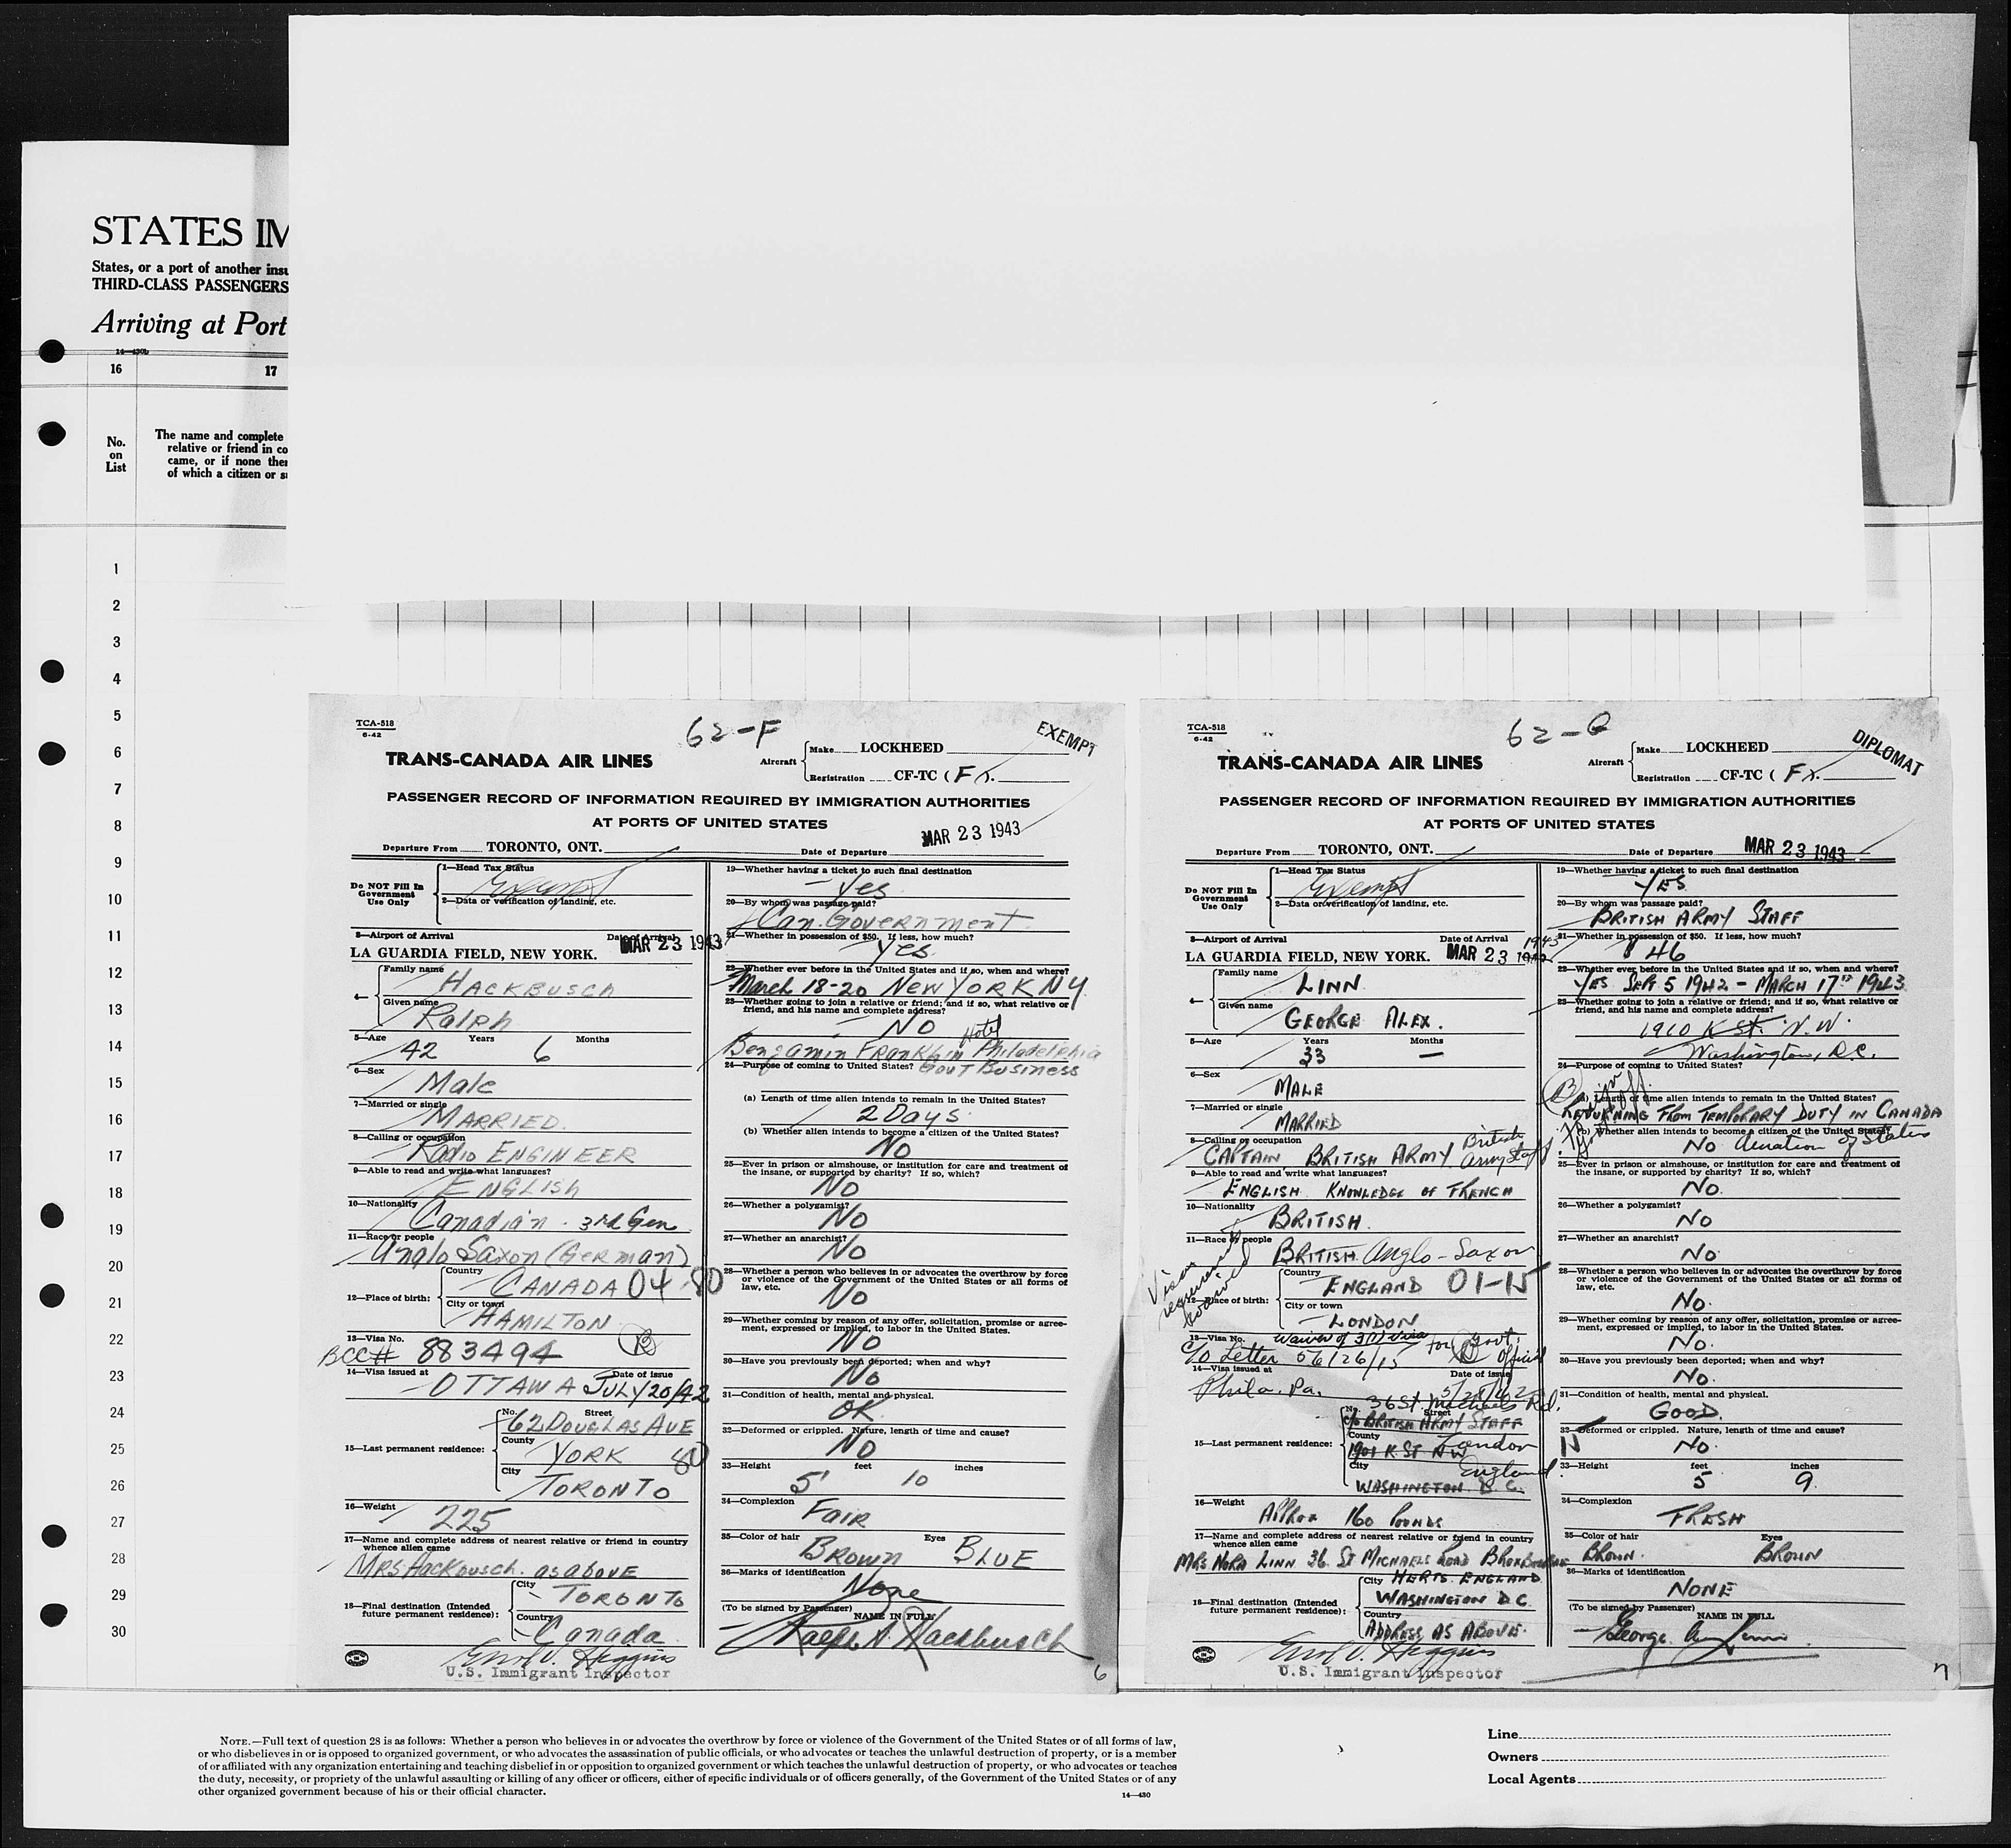 STATES IM
States, or a port of another insu
THIRD-CLASS PASSENGERS
Arriving at Port
14—430b
16 17
No.
on
List
The name and complete
relative or friend in co
came, or if none ther
of which a citizen or su
1
2
3
4
5
6
7
8
9
10
11
12
13
14
15
16
17
18
19
20
21
22
23
24
25
26
27
28
29
30
TCA-518
6-42
62-F
EXEMPT
TRANS-CANADA AIR LINES
Aircraft
Make LOCKHEED
Registration CF-TC (F).
PASSENGER RECORD OF INFORMATION REQUIRED BY IMMIGRATION AUTHORITIES
AT PORTS OF UNITED STATES
MAR 23 1943
Departure From TORONTO, ONT. Date of Departure
Do NOT Fill In
Government
Use Only
1—Head Tax Status
Exempt
2—Data or verification of landing, etc.
3—Airport of Arrival Date of Arrival
LA GUARDIA FIELD, NEW YORK. MAR 23 1943
4— Family name
HACKBUSCH
Given name
Ralph
5—Age Years Months
42 6
6—Sex
Male
7—Married or single
MARRIED.
8—Calling or occupation
Radio ENGINEER
9—Able to read and write what languages?
ENGLISH
10—Nationality
Canadian . 3rd Gen
11—Race or people
Anglo Saxon (GERMAN)
12—Place of birth: Country
CANADA 04-80
City or town
HAMILTON
13—Visa No.
BCC# 883494 R
14—Visa issued at Date of issue
OTTAWA JULY/20/42
15—Last permanent residence: No. Street
62 DOUGLAS AVE
County
YORK 80
City
TORONTO
16—Weight
225
17—Name and complete address of nearest relative or friend in country
whence alien came
MRS Hackbusch. as above
18—Final destination (Intended
future permanent residence): City
TORONTO
Country
Canada
Errol V. Higgins
U.S. Immigrant Inspector
19—Whether having a ticket to such final destination
Yes
20—By whom was passage paid?
Can. Government
21—Whether in possession of $50. If less, how much?
Yes
22—Whether ever before in the United States and if so, when and where?
March 18-20 NEW YORK NY
23—Whether going to join a relative or friend; and if so, what relative or
friend, and his name and complete address?
NO Hotel
Benjamin Franklin Philadelphia
24—Purpose of coming to United States? GOVT BUSINESS
(a) Length of time alien intends to remain in the United States?
2 Days
(b) Whether alien intends to become a citizen of the United States?
No
25—Ever in prison or almshouse, or institution for care and treatment of
the insane, or supported by charity? If so, which?
No
26—Whether a polygamist?
No
27—Whether an anarchist?
No
28—Whether a person who believes in or advocates the overthrow by force
or violence of the Government of the United States or all forms of
law, etc.
No
29—Whether coming by reason of any offer, solicitation, promise or agree-
ment, expressed or implied, to labor in the United States.
No
30—Have you previously been deported; when and why?
No
31—Condition of health, mental and physical.
OK
32—Deformed or crippled. Nature, length of time and cause?
No
33—Height feet inches
5' 10
34—Complexion
FAIR
35—Color of hair Eyes
BROWN BLUE
36—Marks of identification
None
(To be signed by Passenger) NAME IN FULL
Ralph A. Hackbusch
6
TCA-518
6-42
62-G
DIPLOMAT
TRANS-CANADA AIR LINES
Aircraft
Make LOCKHEED
Registration CF-TC (F).
PASSENGER RECORD OF INFORMATION REQUIRED BY IMMIGRATION AUTHORITIES
AT PORTS OF UNITED STATES
Departure From TORONTO, ONT. Date of Departure MAR 23 1943
Do NOT Fill In
Government
Use Only
1—Head Tax Status
Exempt
2—Data or verification of landing, etc.
3—Airport of Arrival Date of Arrival 1943
LA GUARDIA FIELD, NEW YORK. MAR 23
4— Family name
LINN
Given name
GEORGE ALEX.
5—Age Years Months
33 —
6—Sex
MALE
7—Married or single
MARRIED
8—Calling or occupation British
CAPTAIN BRITISH ARMY Army Staff
9—Able to read and write what languages?
ENGLISH KNOWLEDGE OF FRENCH
10—Nationality
BRITISH.
11—Race or people
BRITISH Anglo-Saxon
Visa
requirement
waived
12—Place of birth: Country
ENGLAND 01-15
City or town
LONDON
13—Visa No. Waiver of 3(1) Visa for Govt.
C/O Letter 56/26/15 Official
14—Visa issued at Date of issue
Phila. Pa.
36 St. Michaels Rd.
15—Last permanent residence: No. Street
c/o BRITISH ARMY STAFF
County
1901 K ST NW London
City England
WASHINGTON D.C.
16—Weight
APPROX 160 POUNDS
17—Name and complete address of nearest relative or friend in country
whence alien came
MRS NORA LINN 36 ST MICHAELS ROAD
18—Final destination (Intended
future permanent residence): City HERTS. ENGLAND
WASHINGTON D.C.
Country
ADDRESS AS ABOVE.
Errol V. Higgins
U.S. Immigrant Inspector
19—Whether having a ticket to such final destination
YES
20—By whom was passage paid?
BRITISH ARMY STAFF
21—Whether in possession of $50. If less, how much?
$46
22—Whether ever before in the United States and if so, when and where?
YES SEP. 5 1942 - MARCH 17TH 1943
23—Whether going to join a relative or friend; and if so, what relative or
friend, and his name and complete address?
1910 K St. N.W.
Washington, D.C.
24—Purpose of coming to United States?
(a) Length of time alien intends to remain in the United States?
RETURNING FROM TEMPORARY DUTY IN CANADA
(b) Whether alien intends to become a citizen of the United States?
NO Duration of Status
25—Ever in prison or almshouse, or institution for care and treatment of
the insane, or supported by charity? If so, which?
No.
26—Whether a polygamist?
No
27—Whether an anarchist?
No
28—Whether a person who believes in or advocates the overthrow by force
or violence of the Government of the United States or all forms of
law, etc.
No.
29—Whether coming by reason of any offer, solicitation, promise or agree-
ment, expressed or implied, to labor in the United States.
No.
30—Have you previously been deported; when and why?
No.
31—Condition of health, mental and physical.
GOOD.
32—Deformed or crippled. Nature, length of time and cause?
No.
33—Height feet inches
5 9
34—Complexion
FRESH
35—Color of hair Eyes
BROWN. BROWN
36—Marks of identification
NONE
(To be signed by Passenger) NAME IN FULL
George Linn
7
NOTE.—Full text of question 28 is as follows: Whether a person who believes in or advocates the overthrow by force or violence of the Government of the United States or of all forms of law,
or who disbelieves in or is opposed to organized government, or who advocates the assassination of public officials, or who advocates or teaches the unlawful destruction of property, or is a member
of or affiliated with any organization entertaining and teaching disbelief in or opposition to organized government or which teaches the unlawful destruction of property, or who advocates or teaches
the duty, necessity, or propriety of the unlawful assaulting or killing of any officer or officers, either of specific individuals or of officers generally, of the Government of the United States or of any
other organized government because of his or their official character.
14—430
Line
Owners
Local Agents